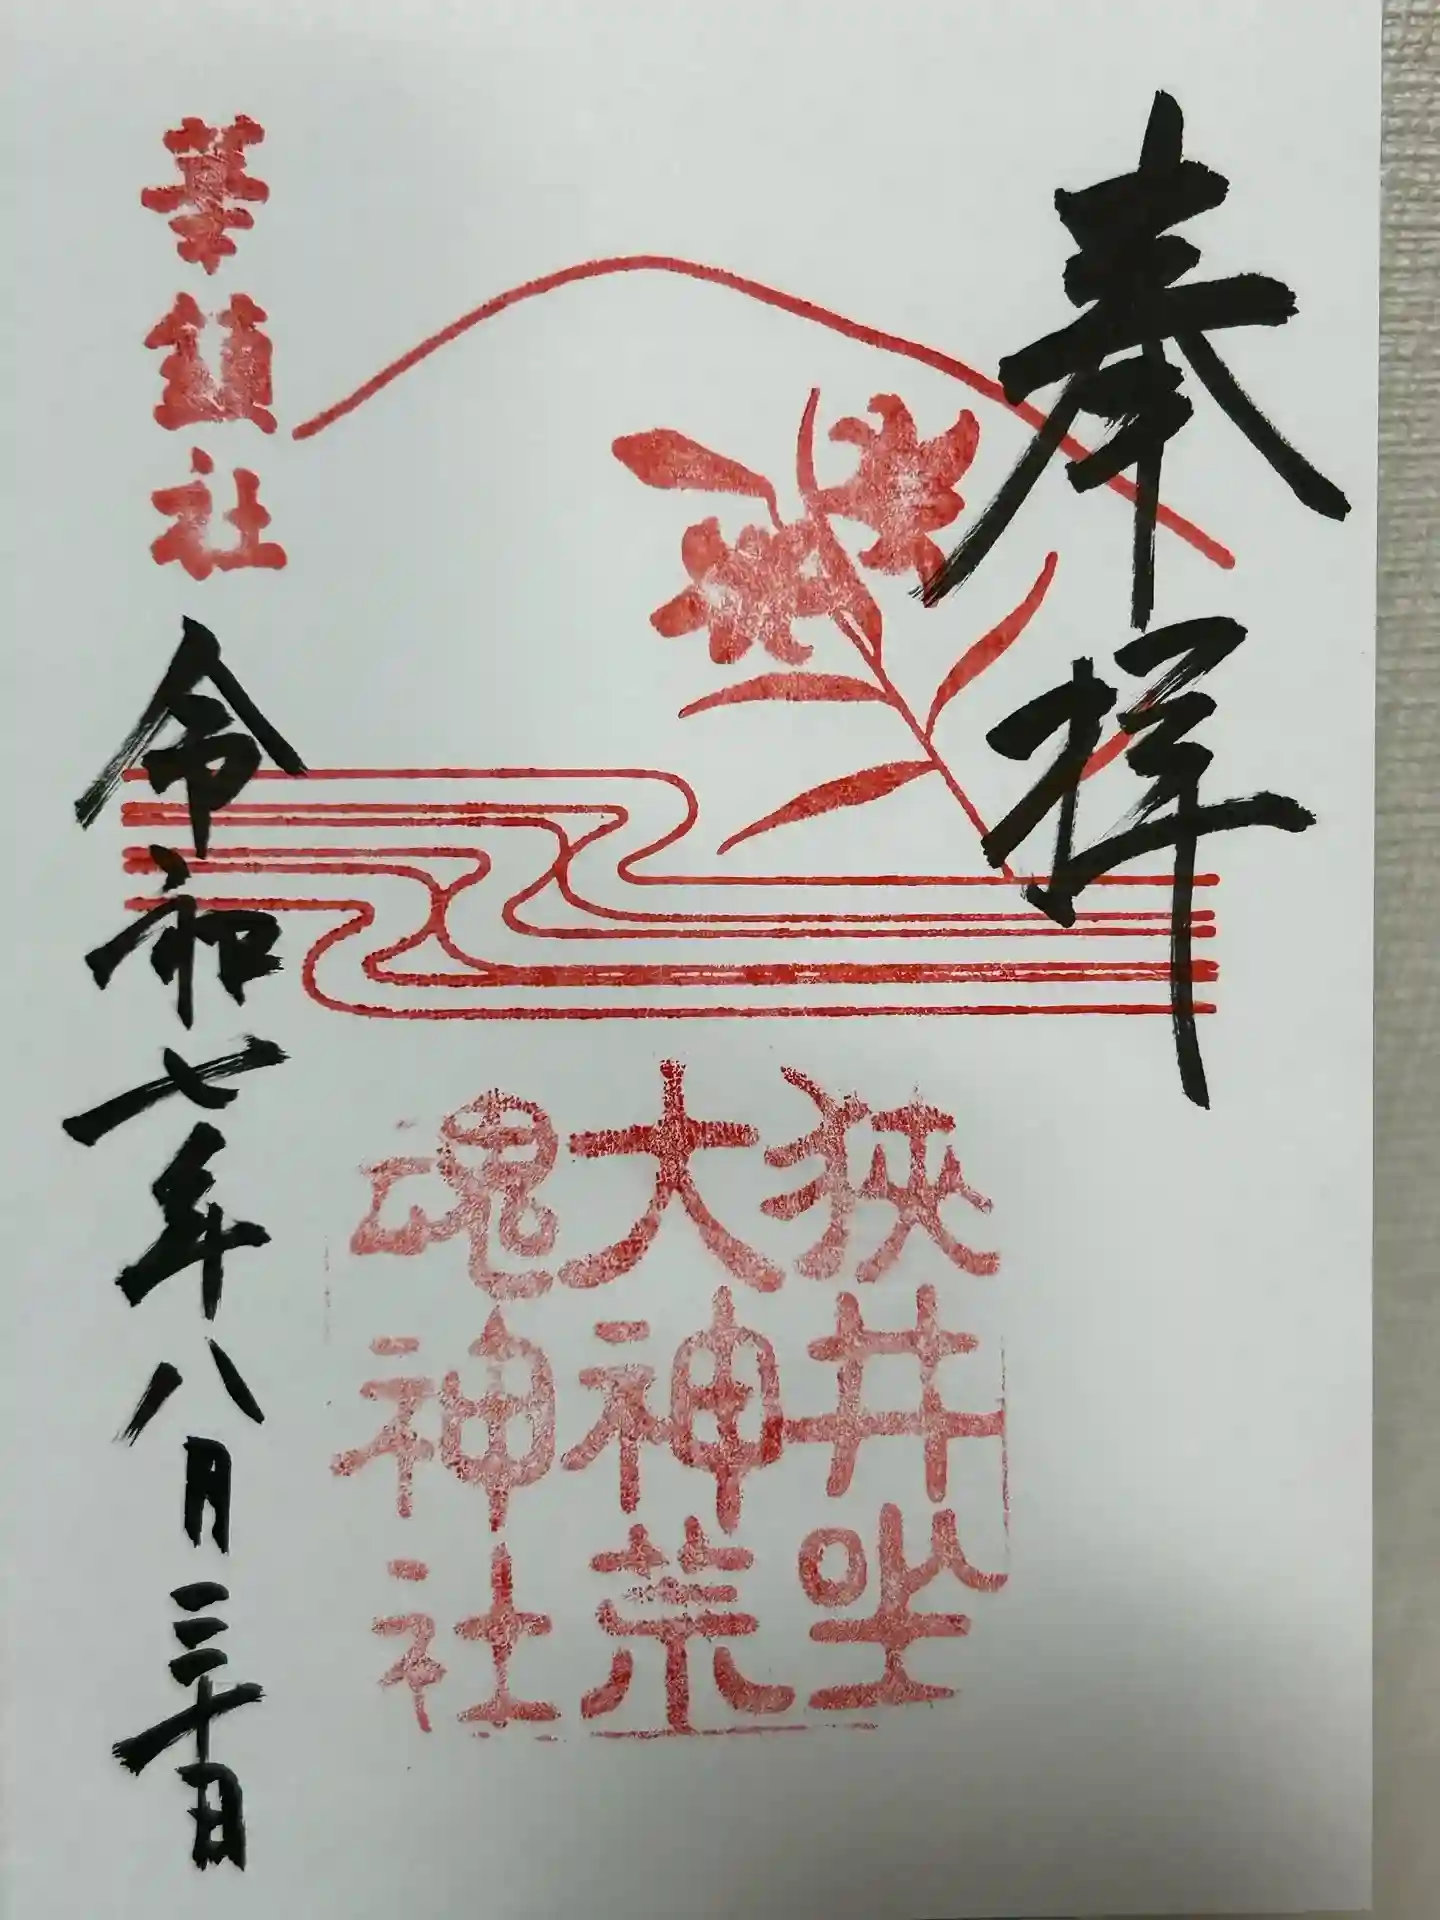 奉拝
狭井坐
大神荒
魂神社
華鎮社
令和七年八月三十日